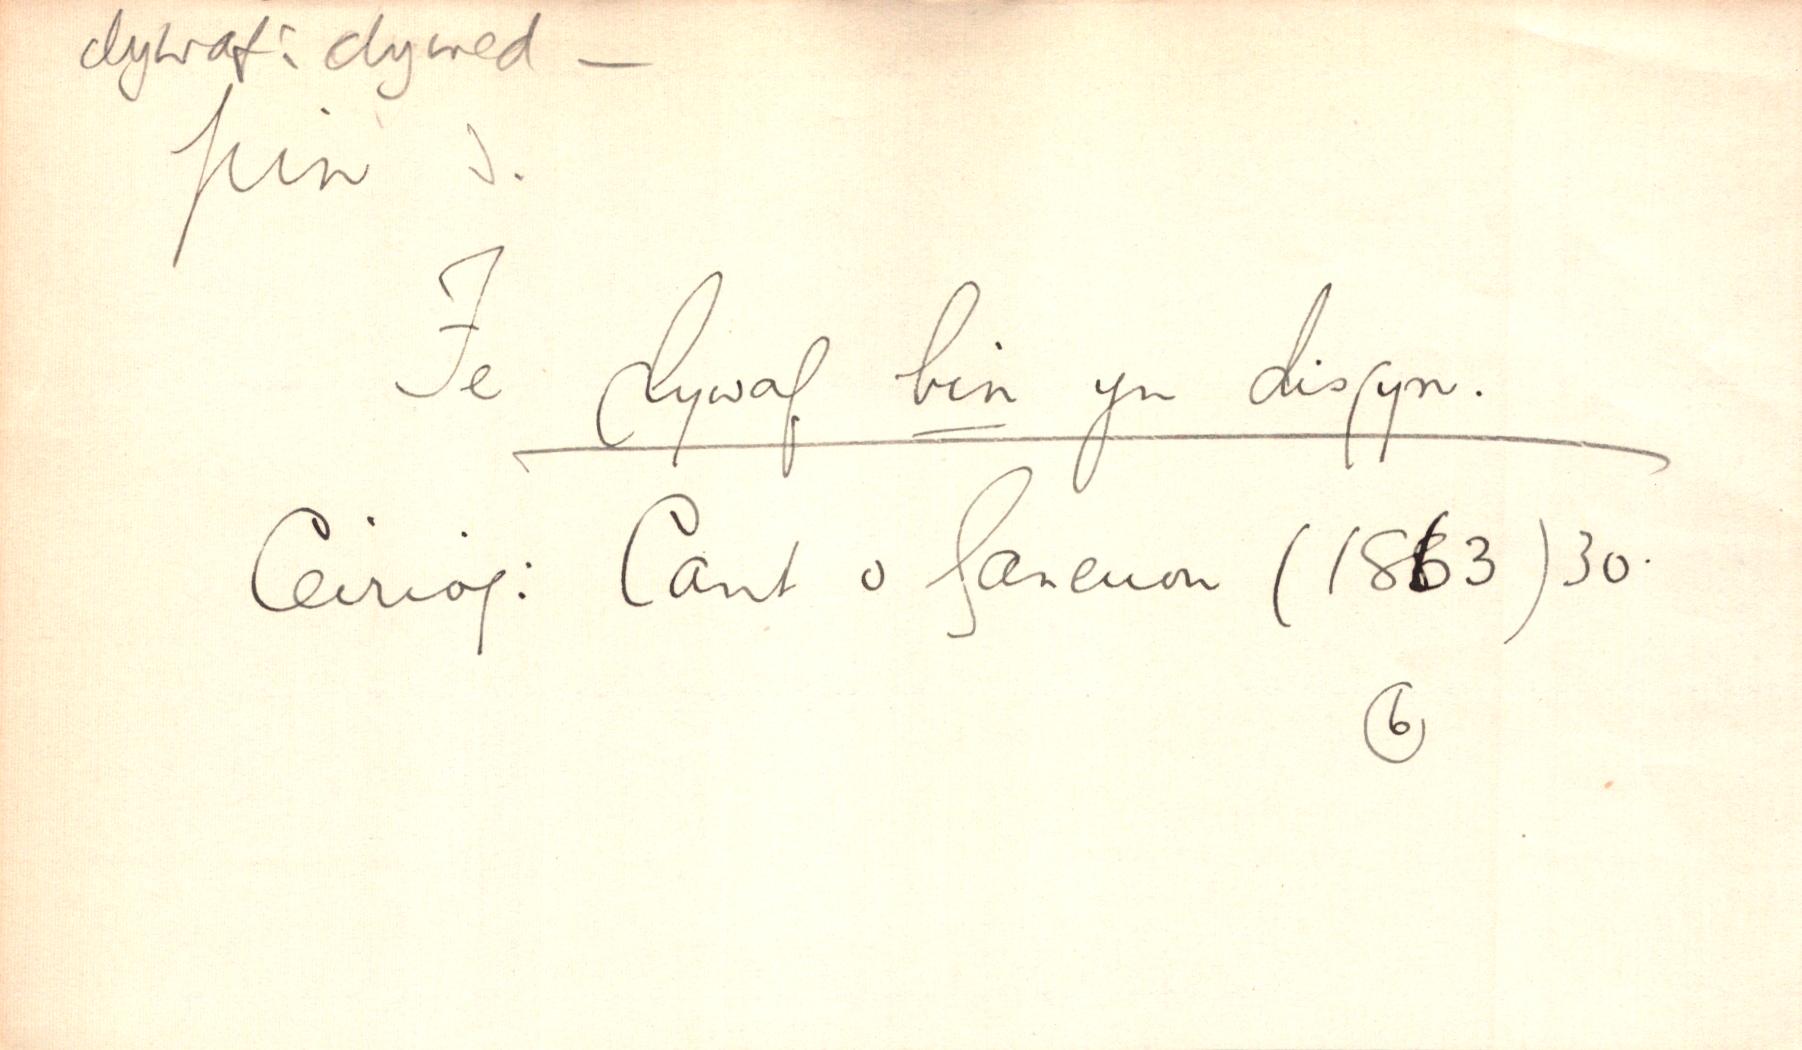 clywaf: clywed —
pin s.
Fe glywaf bin yn disgyn.
Ceiriog: Cant o Ganeuon (1863) 30.
6